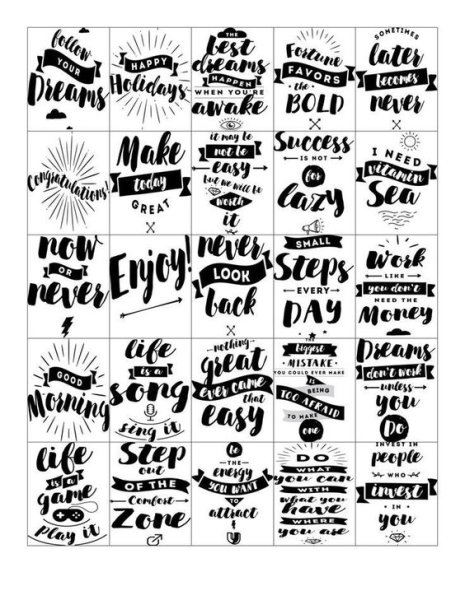 follow
YOUR
Dreams
HAPPY
Holidays
The
best
dreams
HAPPEN
WHEN YOU'RE
awake
Fortune
FAVORS
the
BOLD
SOMETIMES
later
becomes
never
Congratulations!
Make
today
GREAT
it may be
not be
easy
but we will be
worth
it
Success
IS NOT
for
lazy
I NEED
vitamin
Sea
now
OR
never
Enjoy!
never
LOOK
back
SMALL
Steps
EVERY
DAY
Work
LIKE
you don't
NEED THE
Money
GOOD
Morning
life
is a
song
sing it
nothing
great
ever came
that
easy
the
biggest
MISTAKE
YOU COULD EVER MAKE
IS
BEING
TOO AFRAID
TO MAKE
one
Dreams
don't work
unless
you
Do
life
is a
game
play it
Step
out
OF THE
Comfort
Zone
be
THE
energy
YOU WANT
TO
attract
DO
WHAT
you can
WITH
what you
have
WHERE
you are
INVEST IN
people
WHO
invest
IN
you